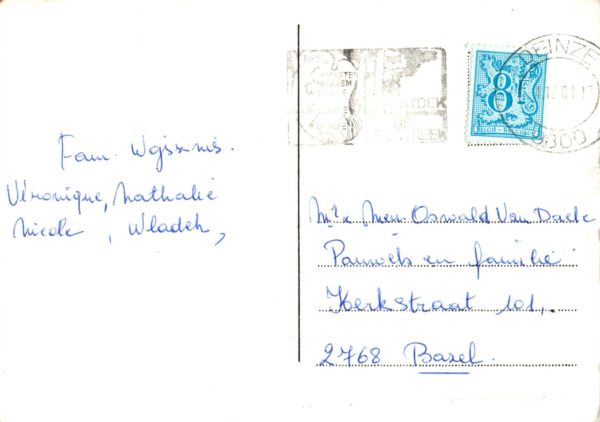 Fam. Wojsznis.
Véronique, Nathalie
Nicole, Wladek,
DEINZE
9800
8F
BELGIE
ONTDEK
DE
Mr & Mevr. Oswald Van Daele
Pauwels en familie
Kerkstraat 101,
2768 Bazel.